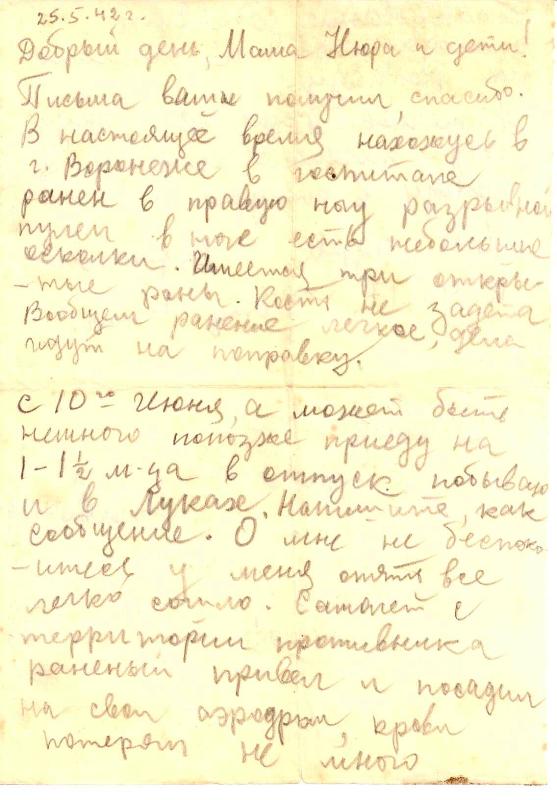 25.5.42 г.
Добрый день, Мама Нюра и дети!
Письма ваши получил, спасибо.
В настоящее время нахожусь в
г. Воронеже в госпитале
ранен в правую ногу разрывной
пулей в ноге есть небольшие
осколки. Имеется три откры-
-тые раны. Кость не задета
Вообщем ранение легкое, дела
идут на поправку.
с 10го Июня, а может быть
немного попозже приеду на
1-1½ м-ца в отпуск побываю
и в Луках. Напишите, как
сообщение. О мне не беспоко-
-итесь у меня опять все
легко сошло. Самолет с
территории противника
раненый привел и посадил
на свой аэродром, крови
потерял не много